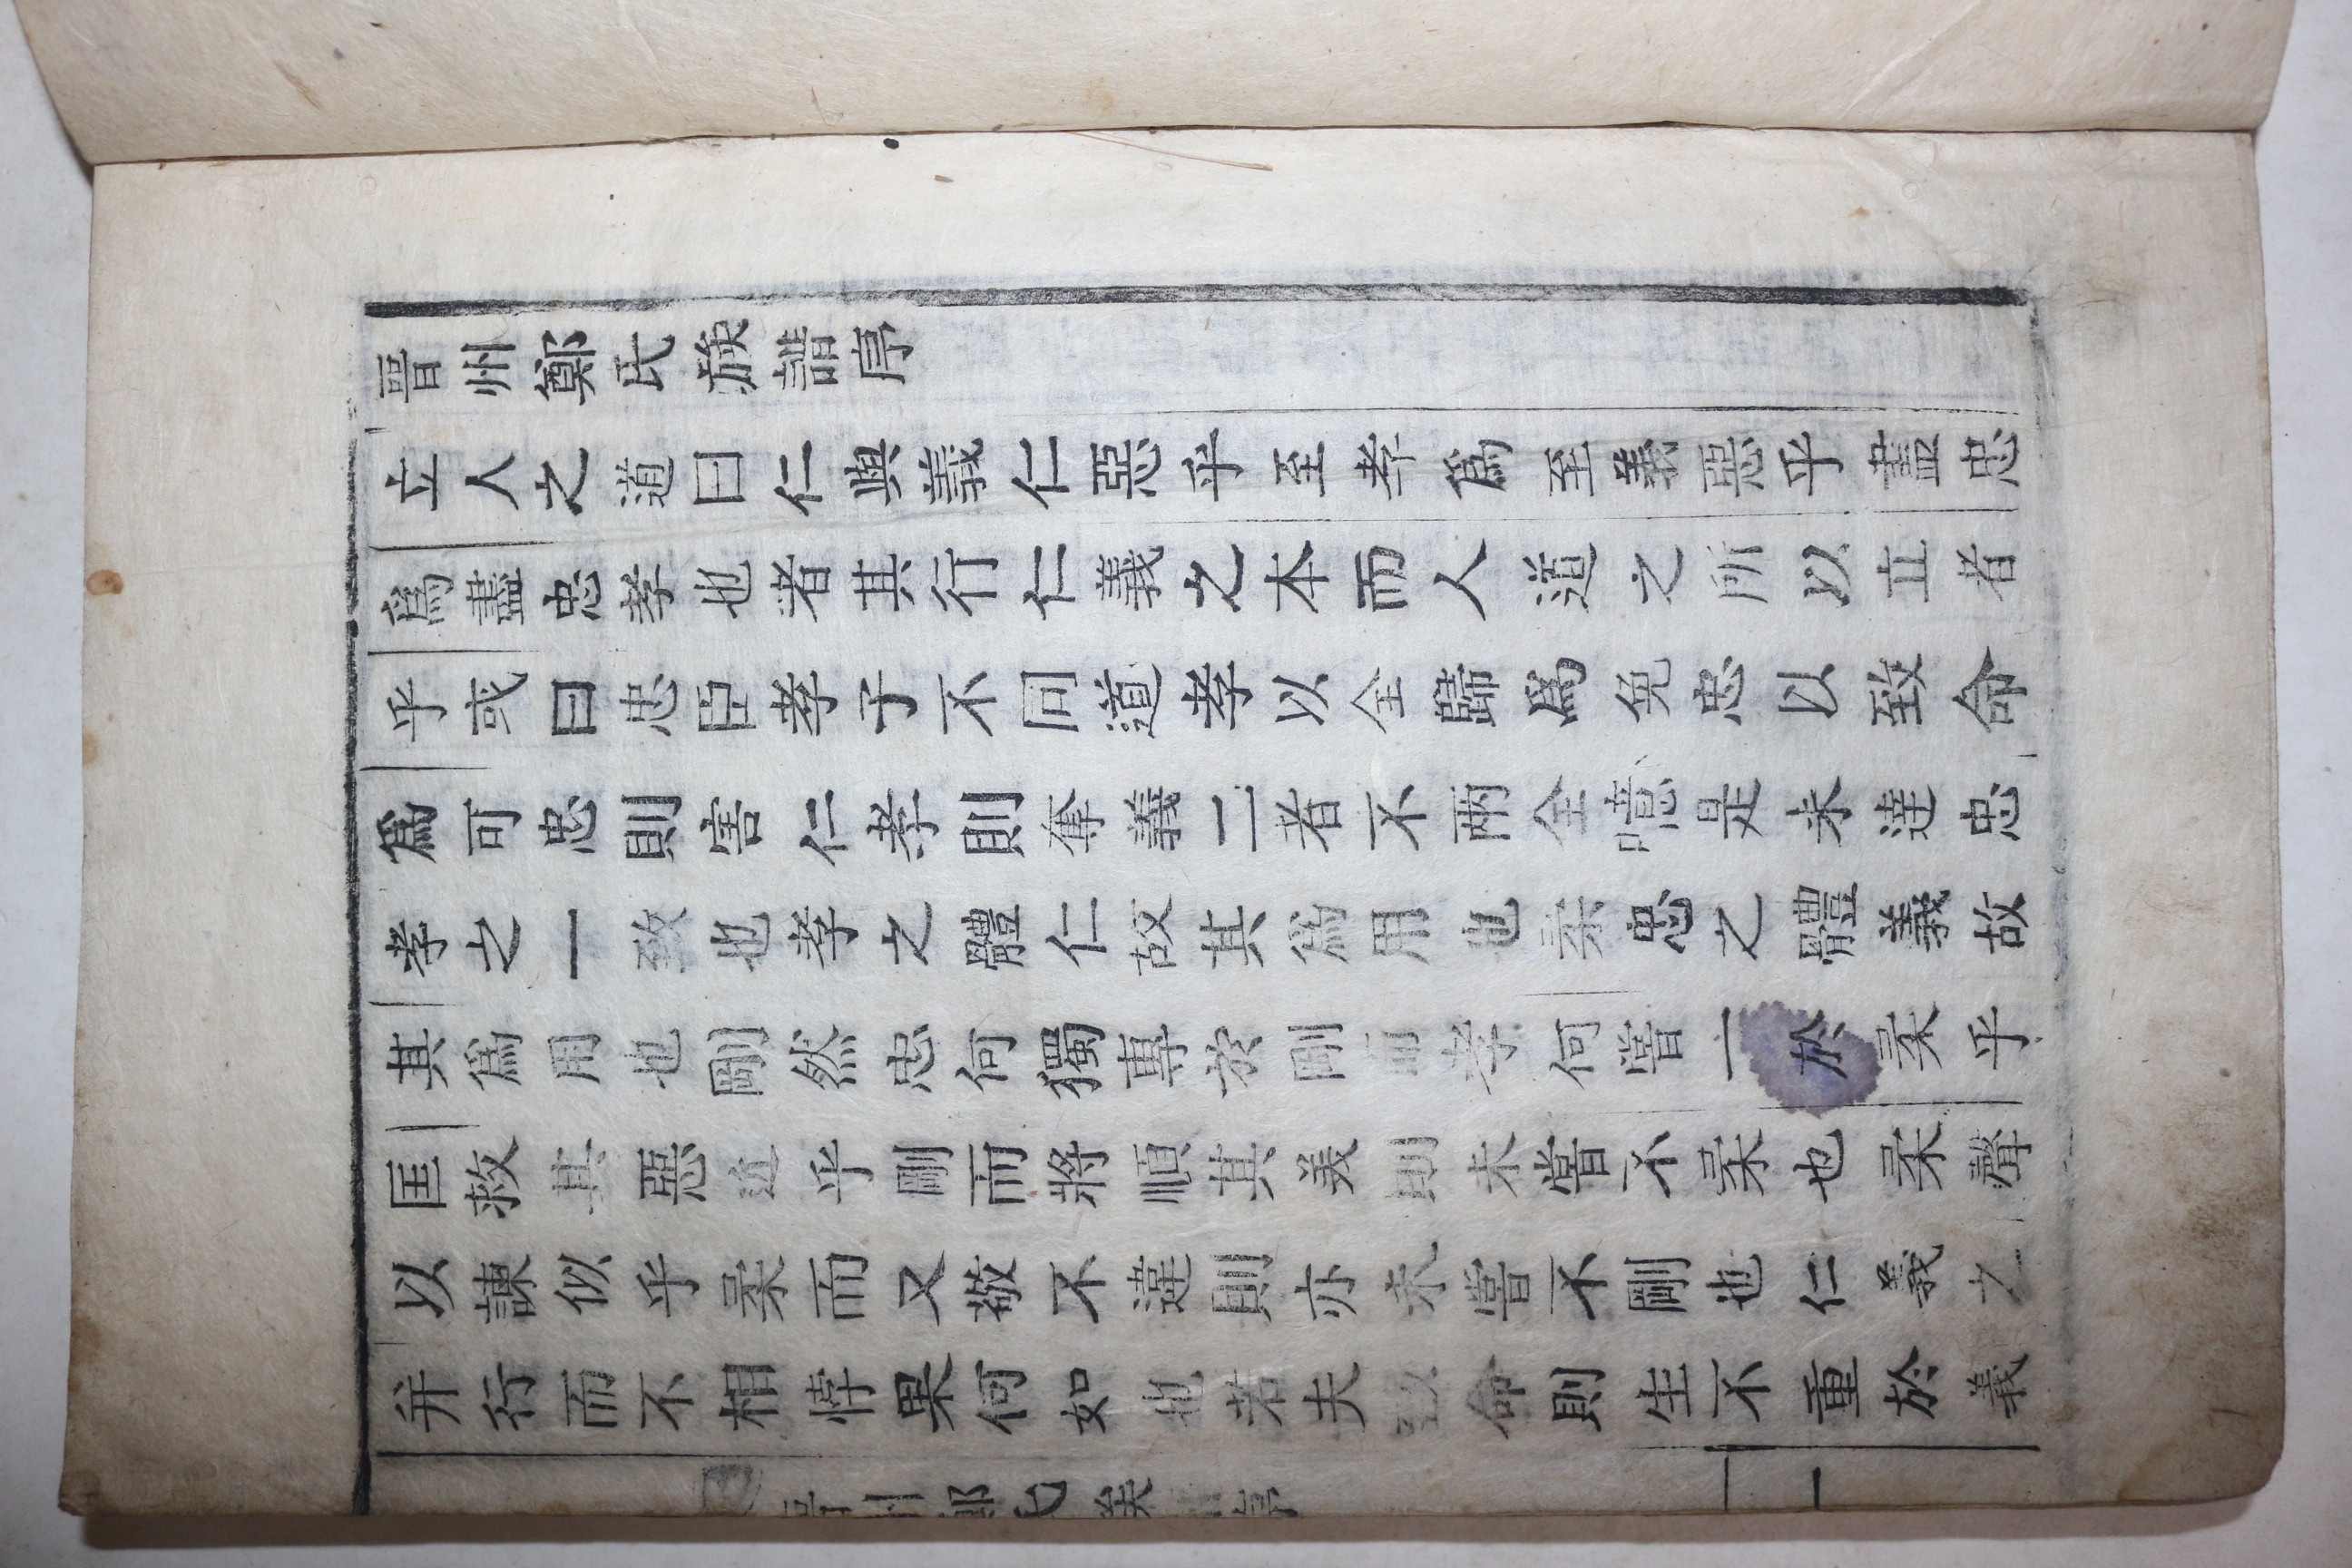 晉州鄭氏族譜序
立人之道曰仁與義仁惡乎至孝爲至義惡乎盡忠
爲盡忠孝也者其行仁義之本而人道之所以立者
乎或曰忠臣孝子不同道孝以全歸爲免忠以致命
爲可忠則害仁孝則奪義二者不兩全噫是未達忠
孝之一致也孝之體仁故其爲用也柔忠之體義故
其爲用也剛然忠何獨專於剛而孝何嘗一於柔乎
匡救其惡近乎剛而將順其美則未嘗不柔也柔聲
以諫似乎柔而又敬不違則亦未嘗不剛也仁義之
并行而不相悖果何如也若夫致命則生不重於義
晉州鄭氏族譜序 一